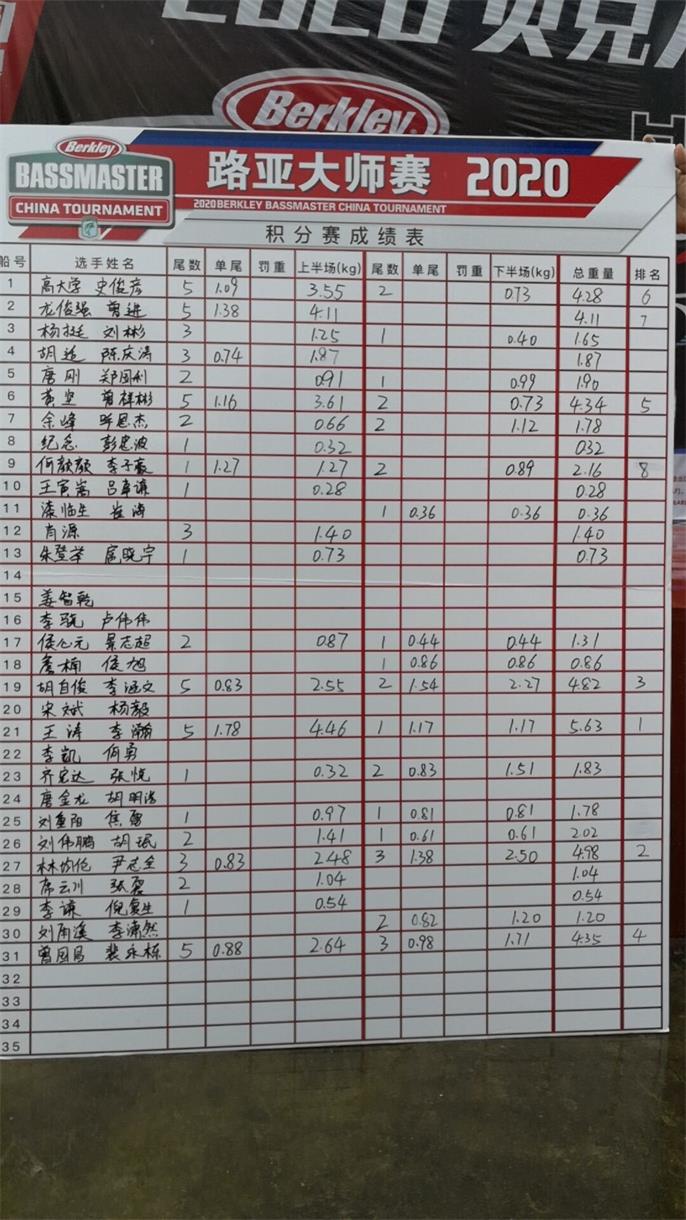 2020 贝克
Berkley
Berkley
BASSMASTER
CHINA TOURNAMENT
路亚大师赛 2020
2020 BERKLEY BASSMASTER CHINA TOURNAMENT
积分赛成绩表
船号 选手姓名 尾数 单尾 罚重 上半场(kg) 尾数 单尾 罚重 下半场(kg) 总重量 排名
1 高大学 史俊彦 5 1.09 3.55 2 0.73 4.28 6
2 龙俊强 曾进 5 1.38 4.11 4.11 7
3 杨挺 刘彬 3 1.25 1 0.40 1.65
4 胡超 陈庆涛 3 0.74 1.87 1.87
5 唐刚 郑国利 2 0.91 1 0.99 1.90
6 黄坚 曾祥彬 5 1.16 3.61 2 0.73 4.34 5
7 余峰 2 0.66 2 1.12 1.78
8 纪念 彭忠波 1 0.32 0.32
9 何颜颜 李子豪 1 1.27 1.27 2 0.89 2.16 8
10 王寅嵩 吕卓谦 1 0.28 0.28
11 漆临生 崔海 1 0.36 0.36 0.36
12 肖源 3 1.40 1.40
13 朱登举 扈晓宇 1 0.73 0.73
14
15 姜智乾
16 李骁 卢伟伟
17 侯元 景志超 2 0.87 1 0.44 0.44 1.31
18 詹楠 侯旭 1 0.86 0.86 0.86
19 胡自俊 李涵文 5 0.83 2.55 2 1.54 2.27 4.82 3
20 宋斌 杨毅
21 王涛 李瀚 5 1.78 4.46 1 1.17 1.17 5.63 1
22 李凯 何勇
23 齐宏达 张悦 1 0.32 2 0.83 1.51 1.83
24 唐金龙 胡明浩
25 刘重阳 焦磊 1 0.97 1 0.81 0.81 1.78
26 刘伟鹏 胡珉 2 1.41 1 0.61 0.61 2.02
27 林伯伦 尹志全 3 0.83 2.48 3 1.38 2.50 4.98 2
28 席云川 张磊 2 1.04 1.04
29 李谦 倪复生 1 0.54 0.54
30 刘雨溪 李潇然 2 0.82 1.20 1.20
31 曾国昌 裴永栋 5 0.88 2.64 3 0.98 1.71 4.35 4
32
33
34
35